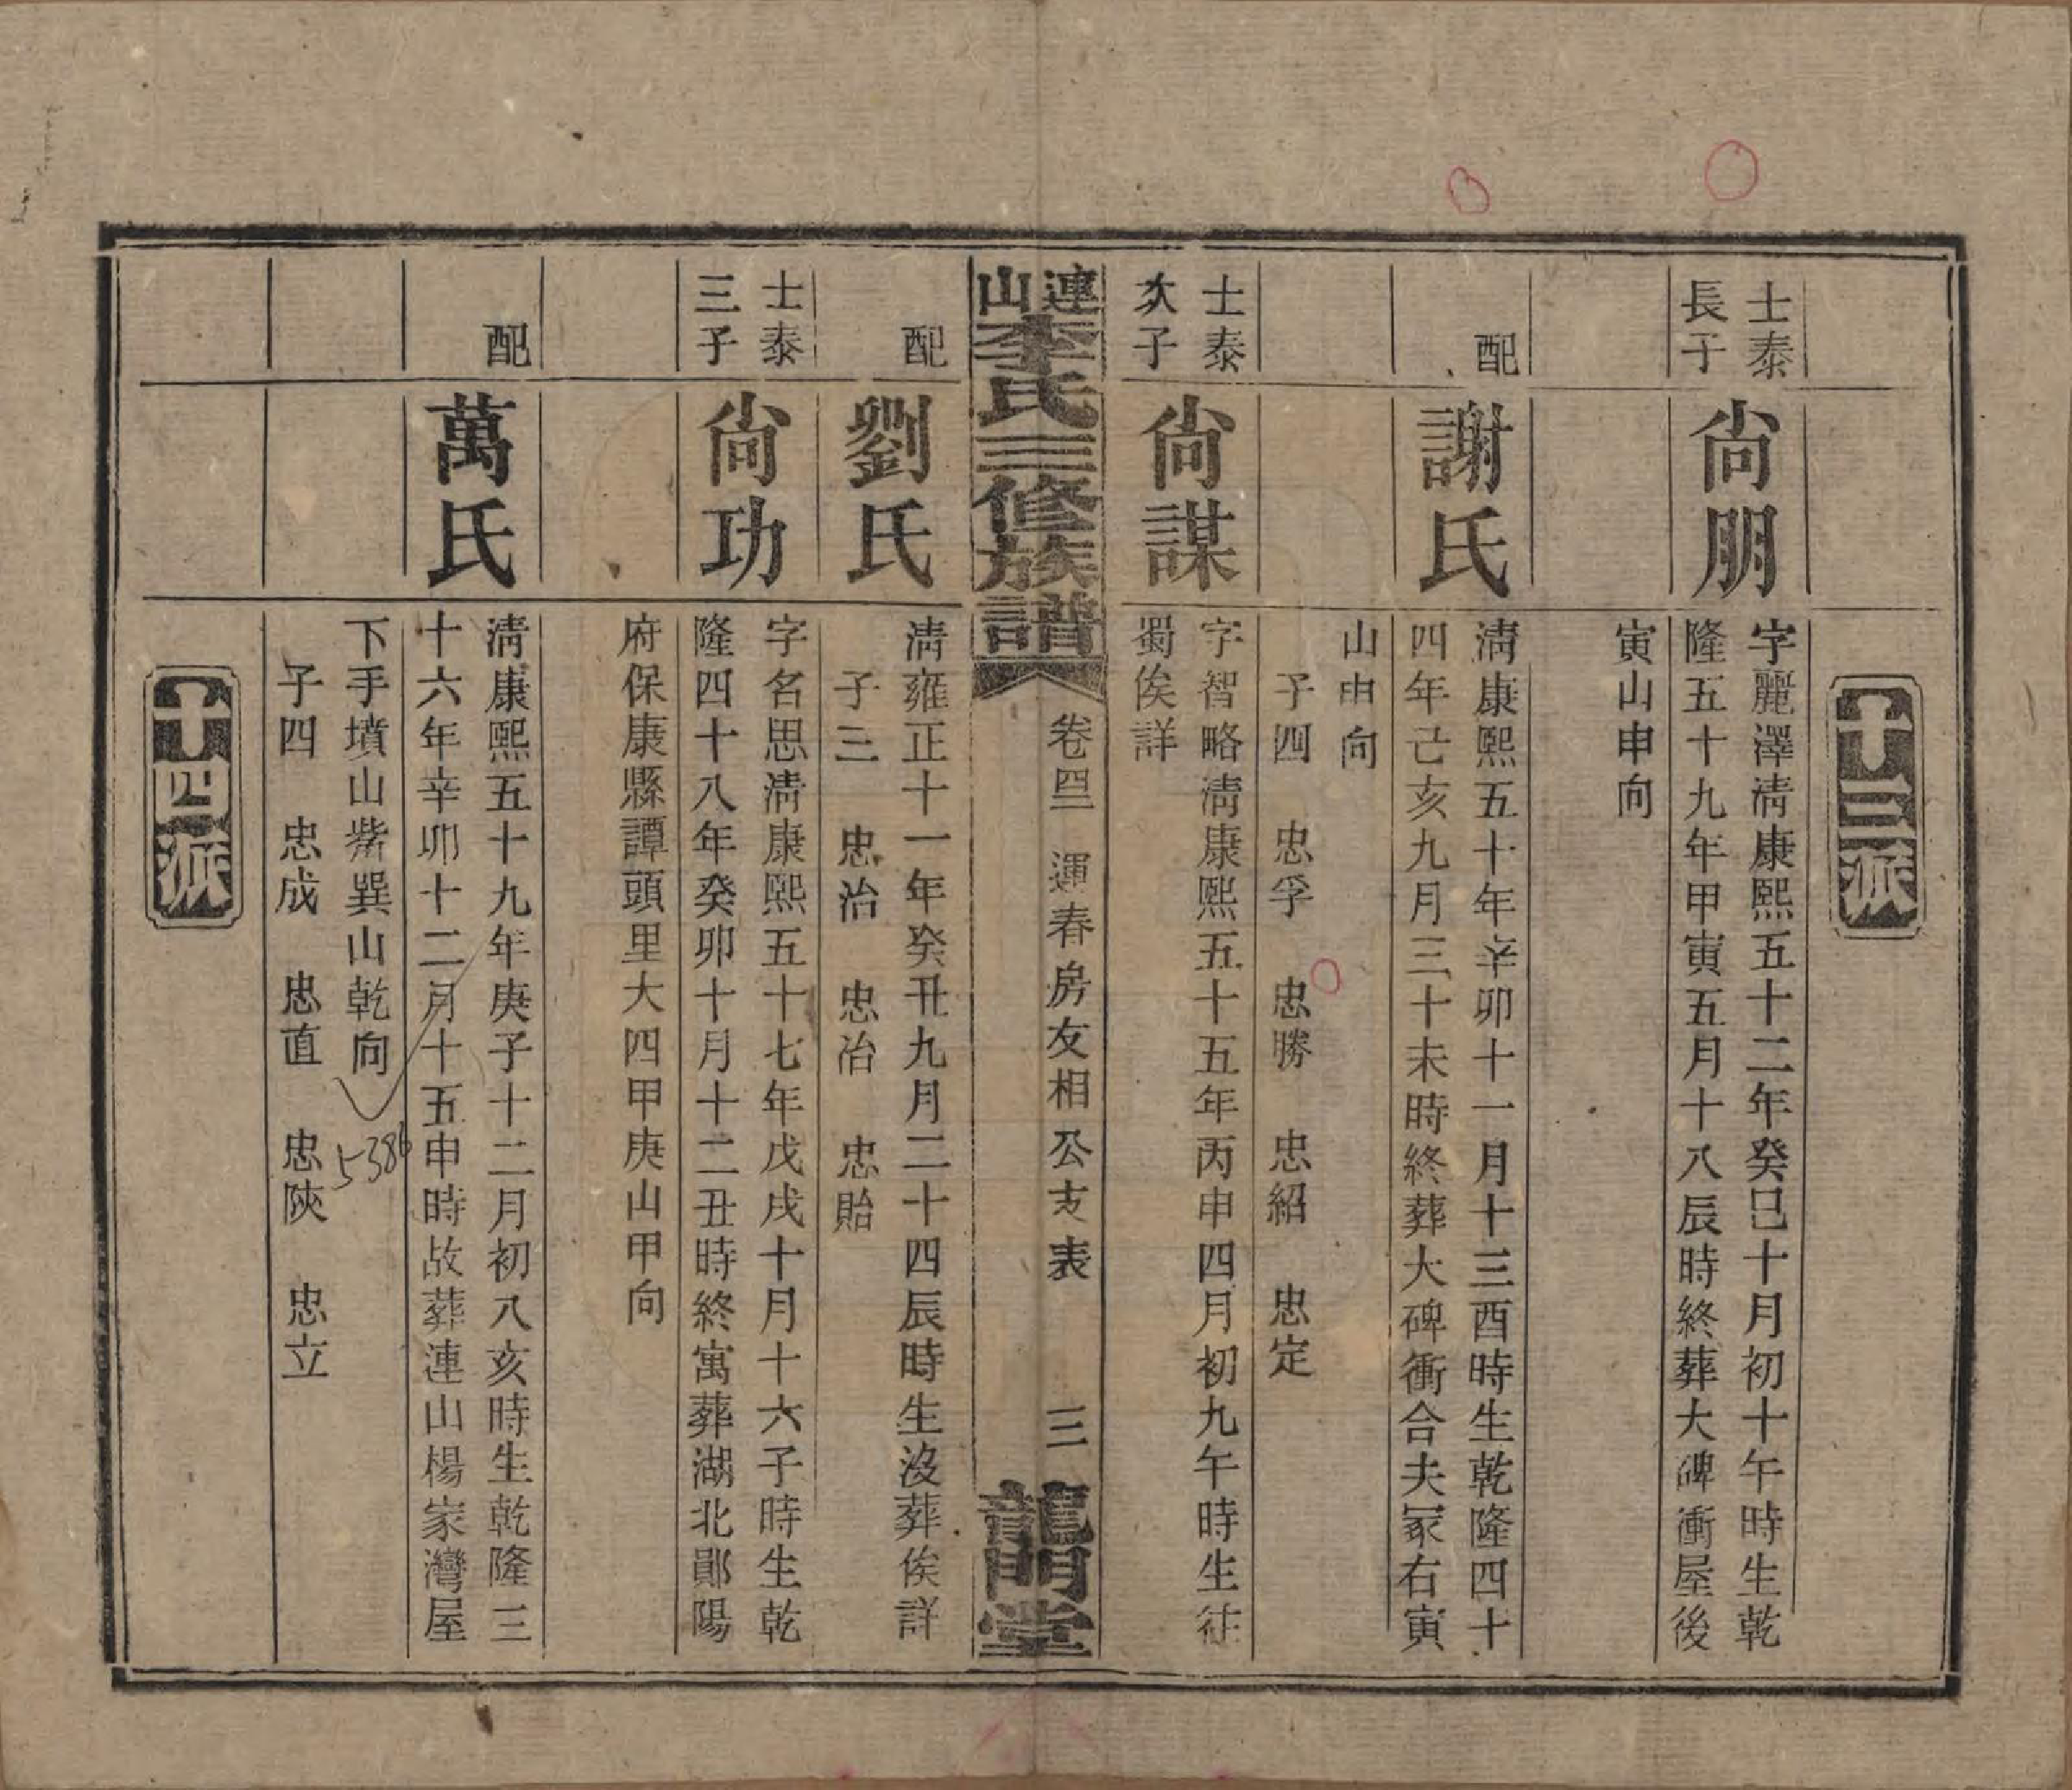 十三派
士泰
長子
尙朋
字麗澤淸康熙五十二年癸巳十月初十午時生乾
隆五十九年甲寅五月十八辰時終葬大碑衝屋後
寅山申向
配
謝氏
淸康熙五十年辛卯十一月十三酉時生乾隆四十
四年己亥九月三十未時終葬大碑衝合夫冢右寅
山申向
子四　忠孚　忠勝　忠紹　忠定
士泰
次子
尙謀
字智略淸康熙五十五年丙申四月初九午時生徃
蜀俟詳
連山李氏三修族譜
卷四二　運春房友相公支表　三
龍門堂
配
劉氏
淸雍正十一年癸丑九月二十四辰時生沒葬俟詳
子三　忠治　忠冶　忠貽
士泰
三子
尙功
字名思淸康熙五十七年戊戌十月十六子時生乾
隆四十八年癸卯十月十二丑時終寓葬湖北鄖陽
府保康縣譚頭里大四甲庚山甲向
配
萬氏
淸康熙五十九年庚子十二月初八亥時生乾隆三
十六年辛卯十二月十五申時故葬連山楊家灣屋
下手墳山觜巽山乾向
5386
子四　忠成　忠直　忠陝　忠立
十四派